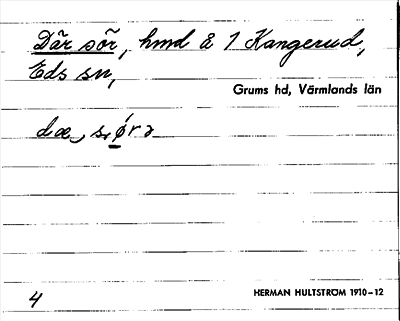 Där sör, hmd å 1 Kangerud,
Eds sn,
Grums hd, Värmlands län
dæ, s. ørɔ
4 HERMAN HULTSTRÖM 1910-12